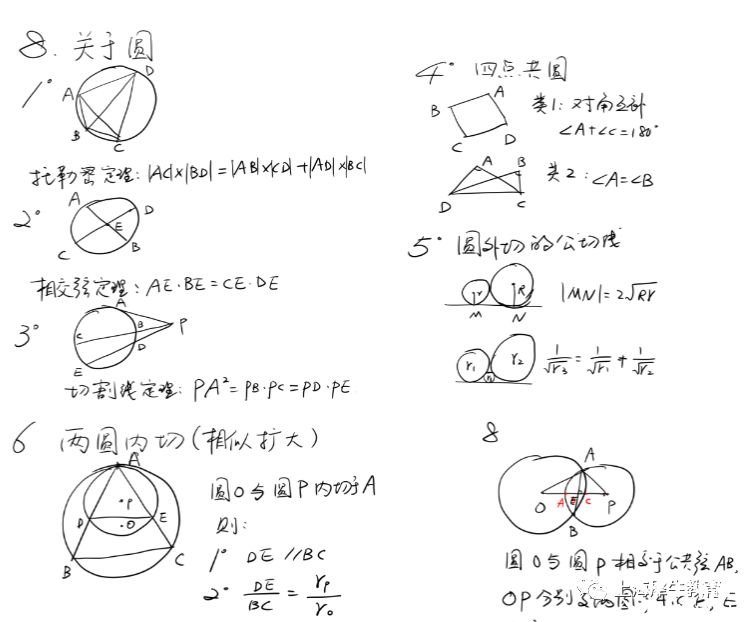 8. 关于圆
1°
A
D
B
C
托勒密定理: |AC|×|BD|=|AB|×|CD|+|AD|×|BC|
2°
A
D
E
C
B
相交弦定理: AE·BE=CE·DE
3°
A
B
P
C
D
E
切割线定理: PA²=PB·PC=PD·PE
4° 四点共圆
A
B
C
D
类1: 对角互补
∠A+∠C=180°
A
B
D
C
类2: ∠A=∠B
5° 圆外切的公切线
r
R
M
N
|MN|=2√Rr
r₁
r₂
1/√r₃ = 1/√r₁ + 1/√r₂
6 两圆内切(相似扩大)
A
P
D
O
E
B
C
圆O与圆P内切于A
则:
1° DE//BC
2° DE/BC = rₚ/r₀
8
A
O
A
E
C
P
B
圆O与圆P相交于公共弦AB,
OP分别交两圆